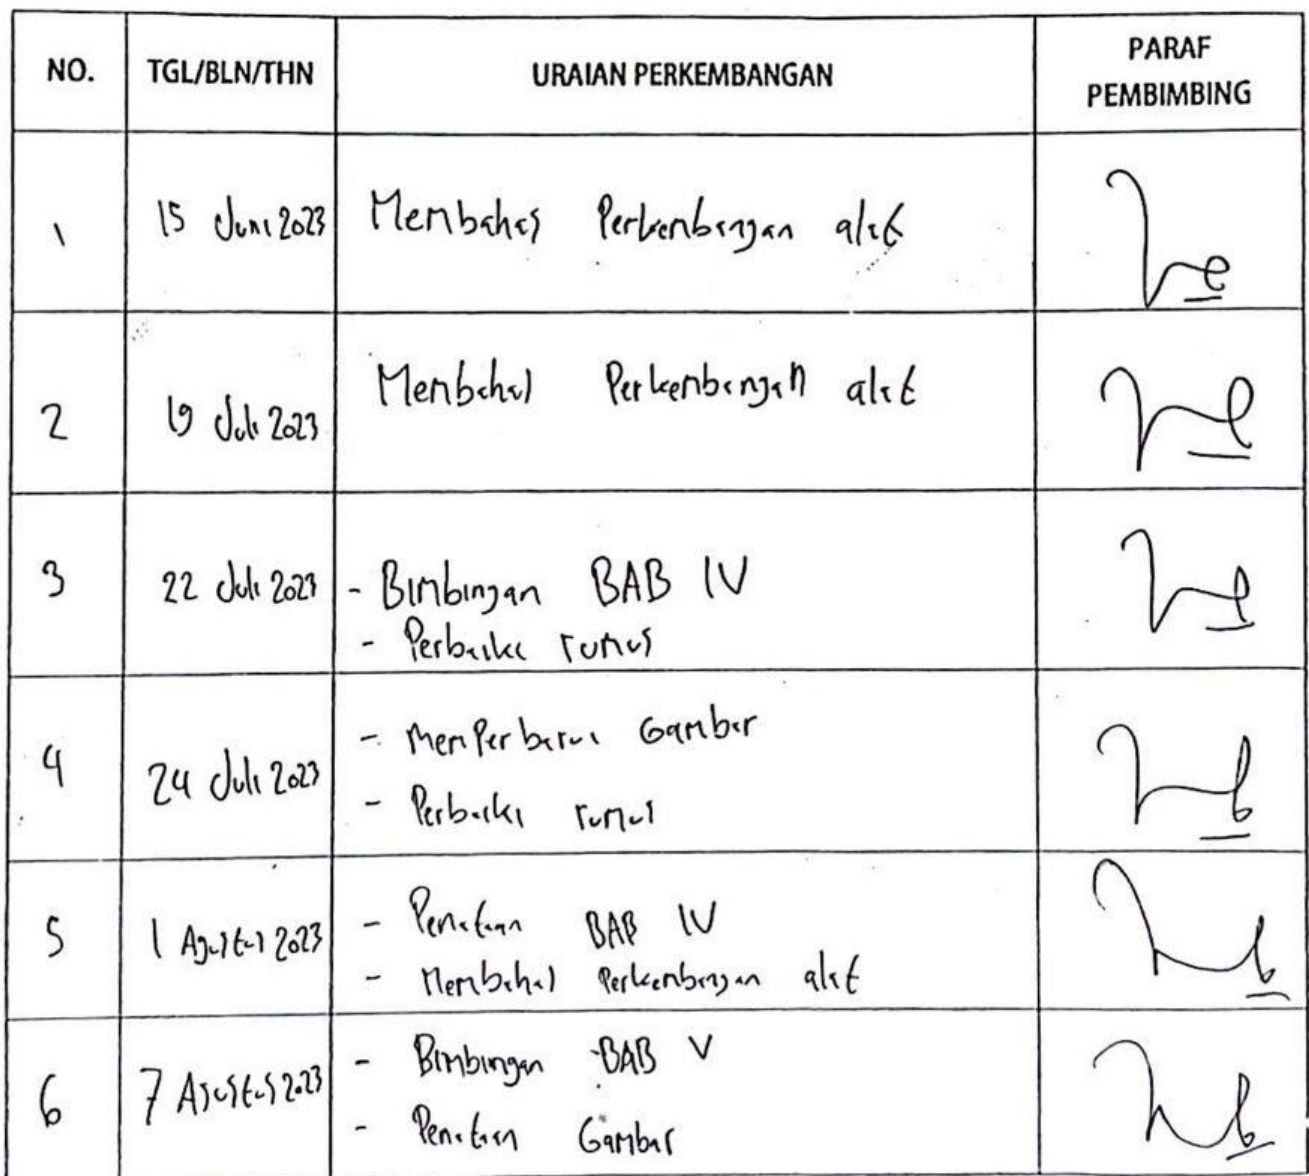 NO. TGL/BLN/THN URAIAN PERKEMBANGAN PARAF
PEMBIMBING
1 15 Juni 2023 Membahas Perkembangan alat
2 19 Juli 2023 Membahas Perkembangan alat
3 22 Juli 2023 - Bimbingan BAB IV
- Perbaiki rumus
4 24 Juli 2023 - Memperbarui Gambar
- Perbaiki rumus
5 1 Agustus 2023 - Penataan BAB IV
- Membahas Perkembangan alat
6 7 Agustus 2023 - Bimbingan BAB V
- Penataan Gambar